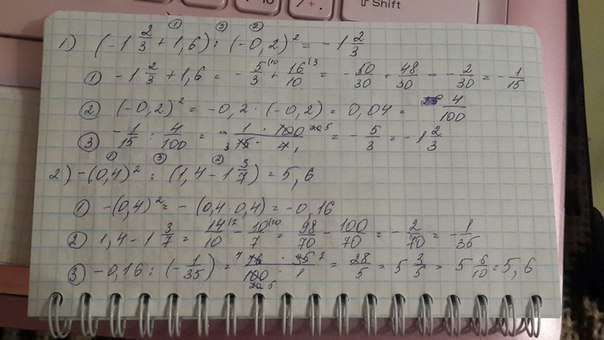 Shift
1) (-1 2/3 + 1,6) : (-0,2)² = -1 2/3
① -1 2/3 + 1,6 = -5/3 + 16/10 = -50/30 + 48/30 = -2/30 = -1/15
② (-0,2)² = -0,2 · (-0,2) = 0,04 = 4/100
③ -1/15 : 4/100 = -1 · 100/15 · 4 = -5/3 = -1 2/3
2) -(0,4)² : (1,4 - 1 3/7) = 5,6
① -(0,4)² = -(0,4·0,4) = -0,16
② 1,4 - 1 3/7 = 14/10 - 10/7 = 98/70 - 100/70 = -2/70 = -1/35
③ -0,16 : (-1/35) = 16 · 35/100 · 1 = 28/5 = 5 3/5 = 5 6/10 = 5,6